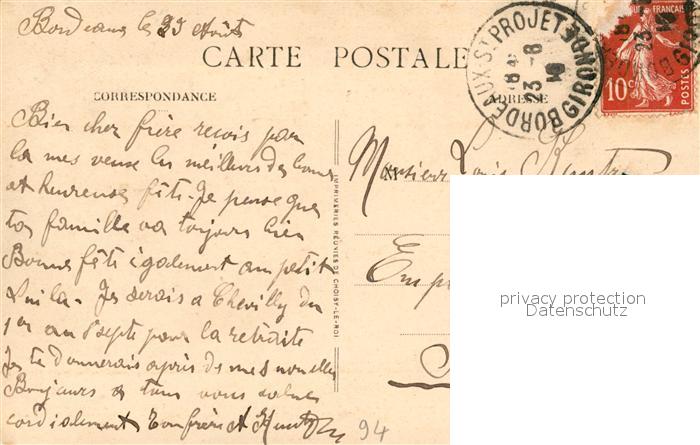 Bordeaux le 23 Août
CARTE POSTALE
CORRESPONDANCE
ADRESSE
BORDEAUX ST PROJET
GIRONDE
23 -8
FRANÇAISE
10c
POSTES
Bien cher frère reçois par
la mes veux les meilleurs de bonne
et heureuse fête. Je pense que
ta famille va toujours bien
Bonne fête également au petit
Je serais a Chevilly du
1er au 8 septe pour la retraite
Je te donnerais après de mes nouvelles
Bonjours a tous vous
cordialement Ton frère
94
IMPRIMERIES RÉUNIES DE CHOISY-LE-ROI
Monsieur Louis
privacy protection
Datenschutz